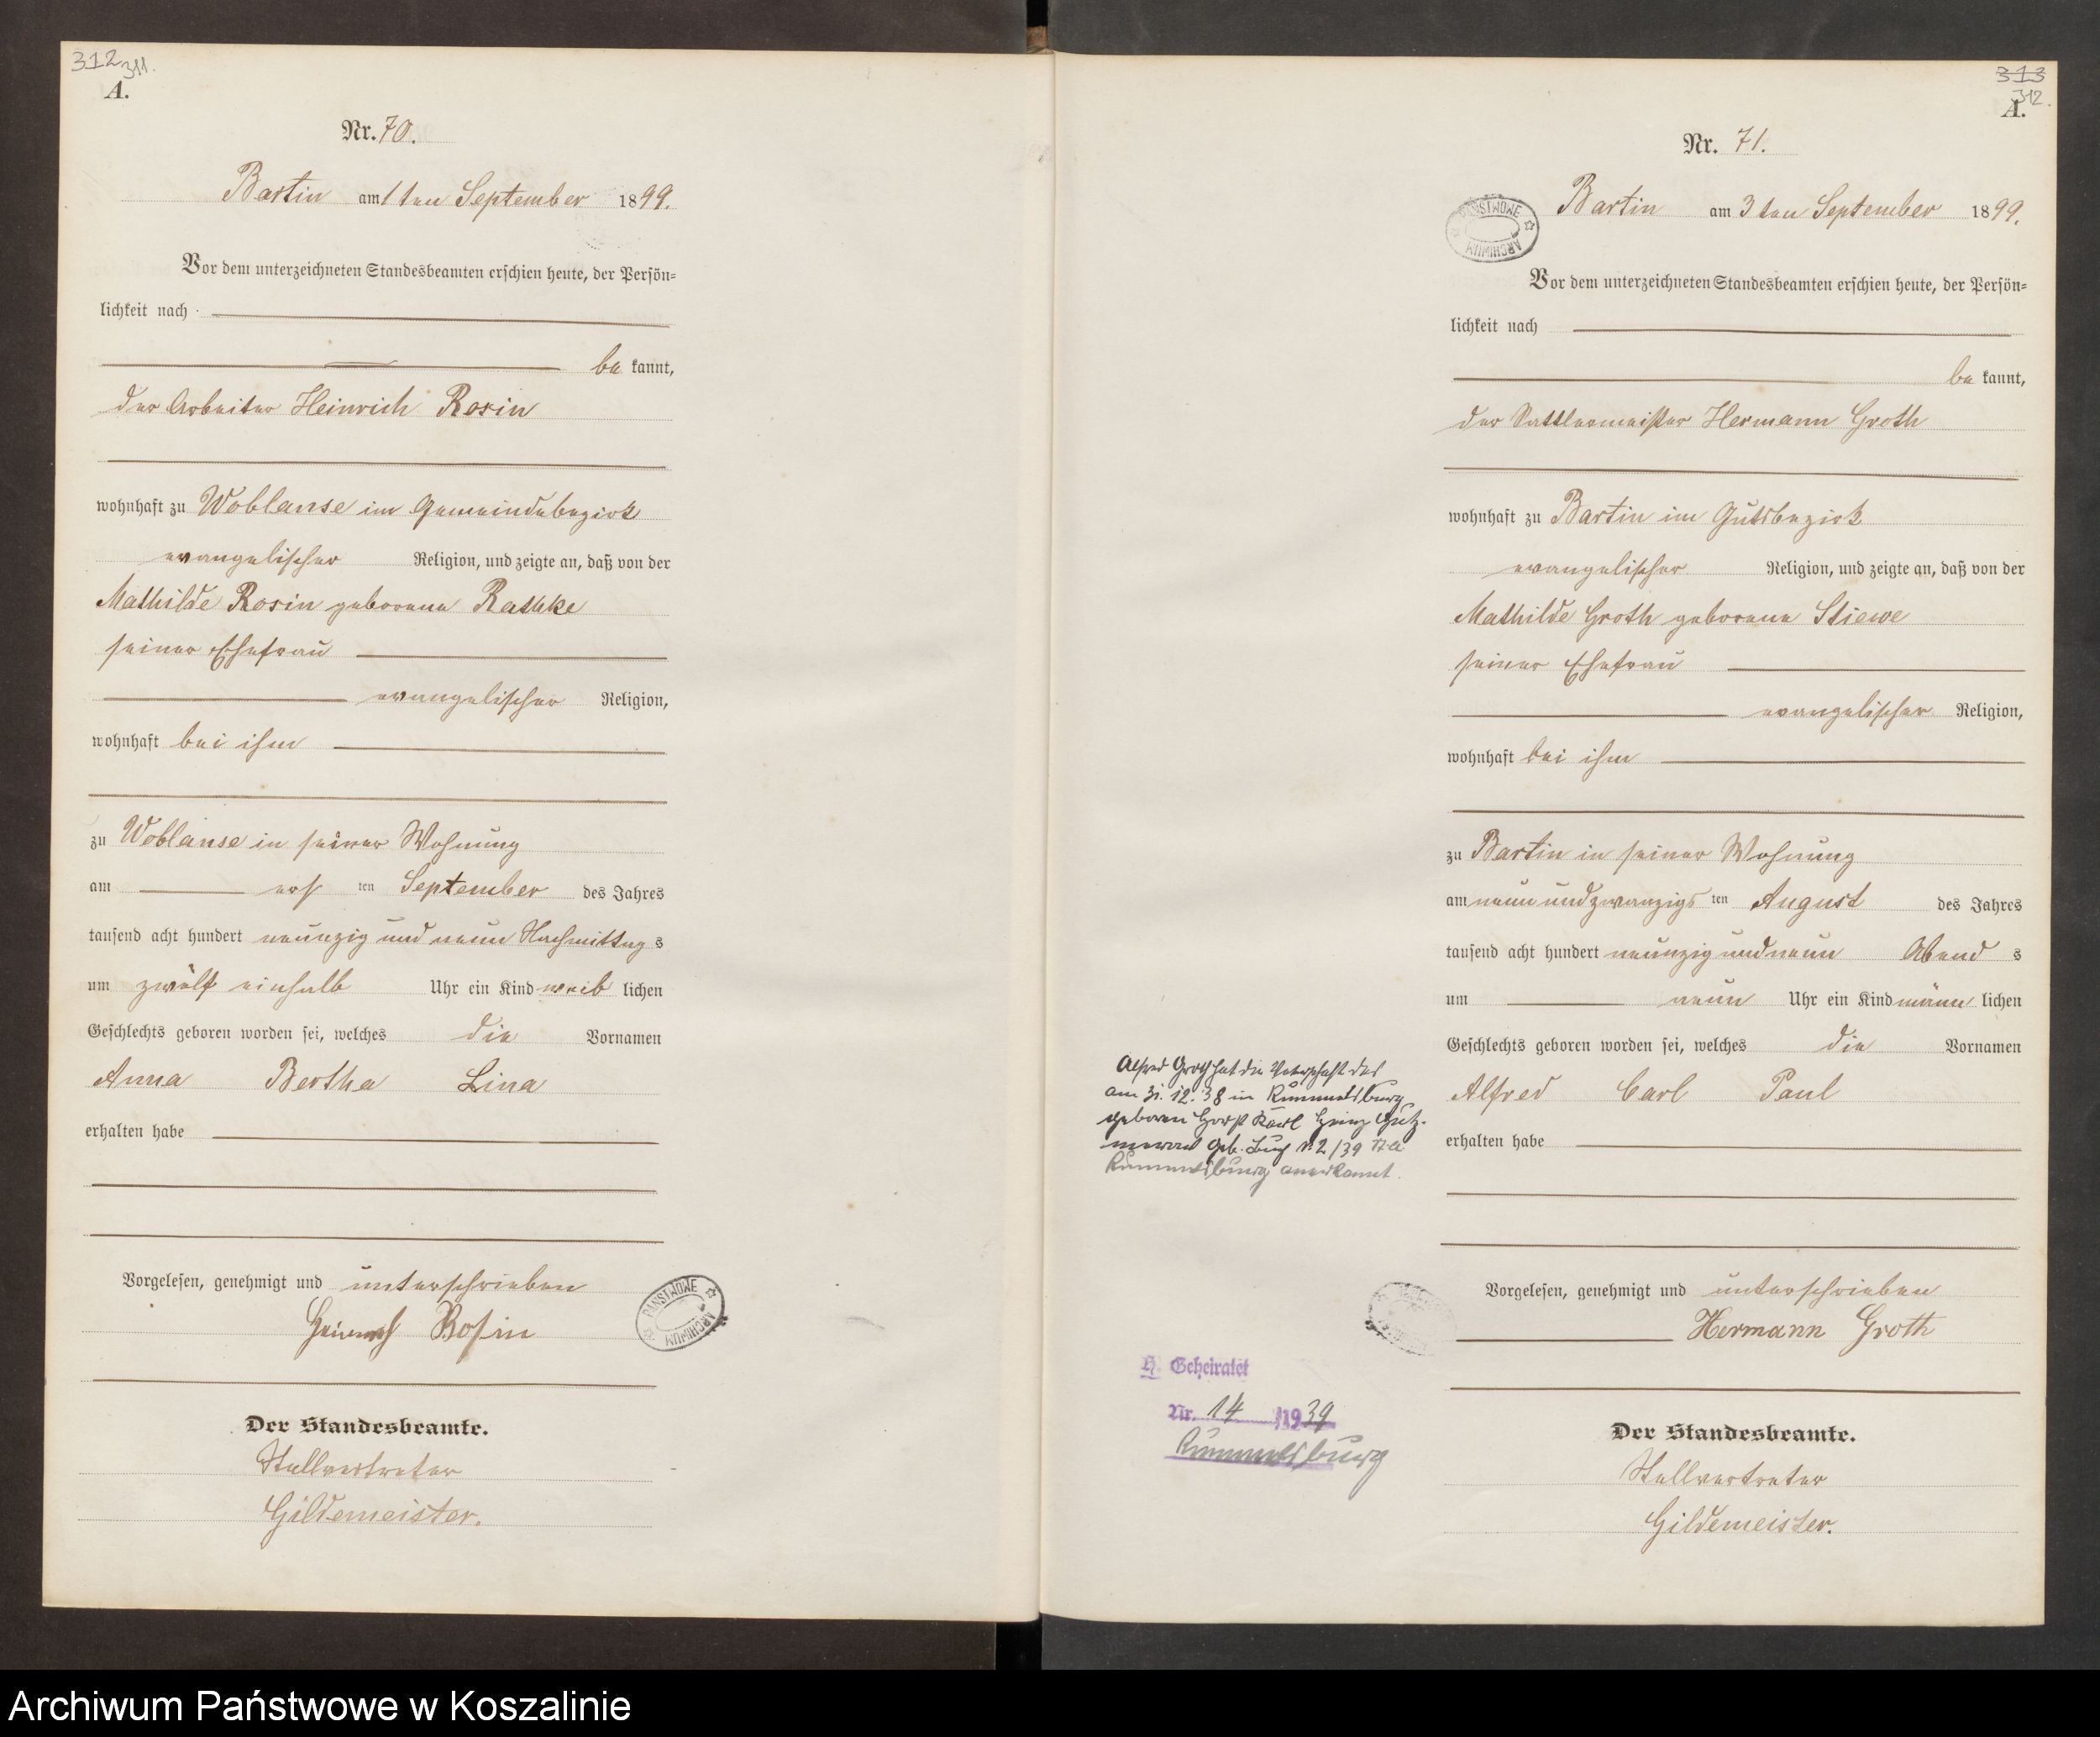 312 311.
A.
Nr. 70.
Bartin am 1 ten September 1899.
Vor dem unterzeichneten Standesbeamten erschien heute, der Persön=
lichkeit nach
be kannt,
der Arbeiter Heinrich Rosin
wohnhaft zu Woblanse im Gemeindebezirk
evangelischer Religion, und zeigte an, daß von der
Mathilde Rosin geborene Rathke
seiner Ehefrau
evangelischer Religion,
wohnhaft bei ihm
zu Woblanse in seiner Wohnung
am ers ten September des Jahres
tausend acht hundert neunzig und neun Nachmittag s
um zwölf einhalb Uhr ein Kind weib lichen
Geschlechts geboren worden sei, welches die Vornamen
Anna Bertha Lina
erhalten habe
Vorgelesen, genehmigt und unterschrieben
Heinrich Rosin
PAŃSTWOWE ARCHIWUM
Der Standesbeamte.
Stellvertreter
Gildemeister.
313
312.
A.
Nr. 71.
PAŃSTWOWE ARCHIWUM
Bartin am 3 ten September 1899.
Vor dem unterzeichneten Standesbeamten erschien heute, der Persön=
lichkeit nach
be kannt,
der Sattlermeister Hermann Groth
wohnhaft zu Bartin im Gutsbezirk
evangelischer Religion, und zeigte an, daß von der
Mathilde Groth geborene Stiewe
seiner Ehefrau
evangelischer Religion,
wohnhaft bei ihm
zu Bartin in seiner Wohnung
am neun und zwanzigs ten August des Jahres
tausend acht hundert neunzig und neun Abend s
um neun Uhr ein Kind männ lichen
Geschlechts geboren worden sei, welches die Vornamen
Alfred Carl Paul
erhalten habe
Alfred Groth hat die Vaterschaft des
am 31. 12. 38 in Rummelsburg
geboren Horst Karl Heinz Gutz-
merow Geb. Buch N. 2/39 St. A.
Rummelsburg anerkannt.
Vorgelesen, genehmigt und unterschrieben
Hermann Groth
Geheiratet
Nr. 14 /1939
Rummelsburg
Der Standesbeamte.
Stellvertreter
Gildemeister.
Archiwum Państwowe w Koszalinie